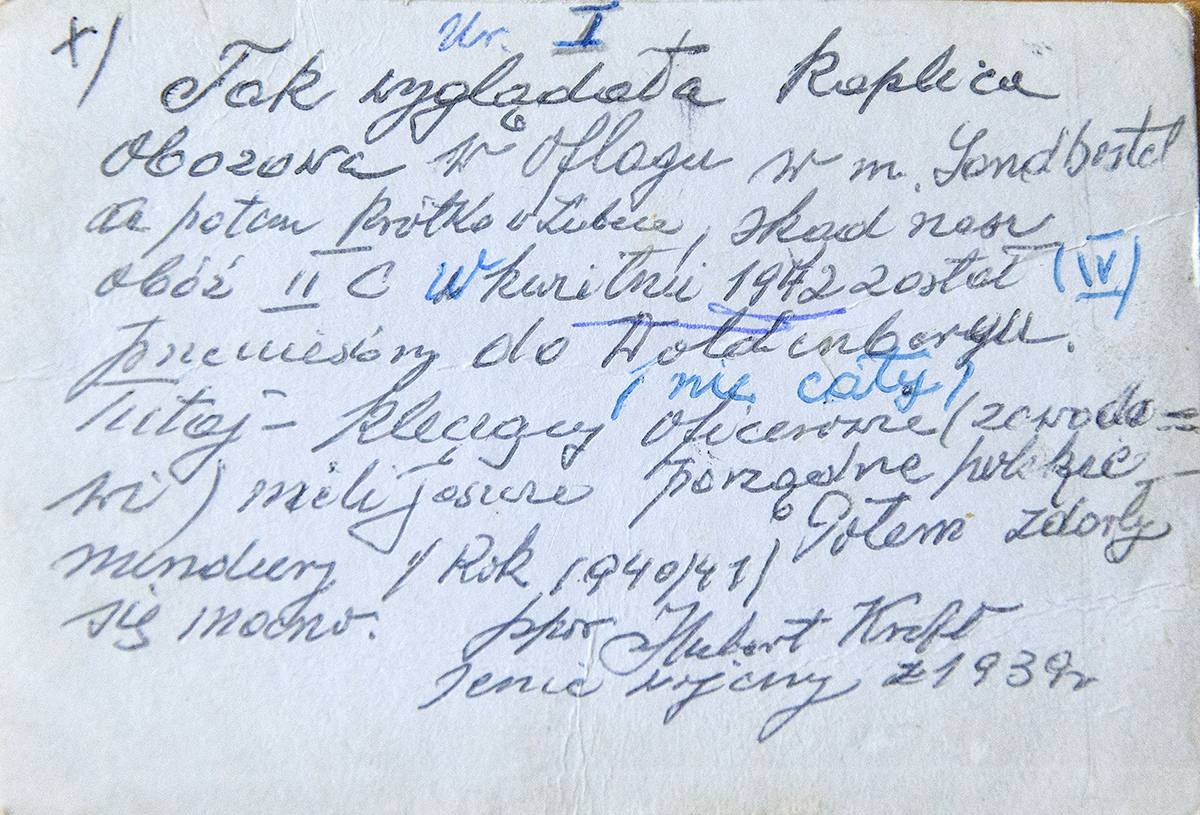 x/ Nr. I
Tak wyglądała kaplica
obozowa w Oflagu w m. Sandbostel
a potem krótko w Lubece, skąd nasz
obóz II C w kwietniu 1942 został (IV)
przeniesiony do Woldenbergu.
(nie cały)
Tutaj - klęczący oficerowie (zawodo=
wi) mieli jeszcze porządne polskie
mundury / Rok 1940/41/ Potem zdarły
się mocno.
ppor Hubert Kraft
jeniec wojenny z 1939 r